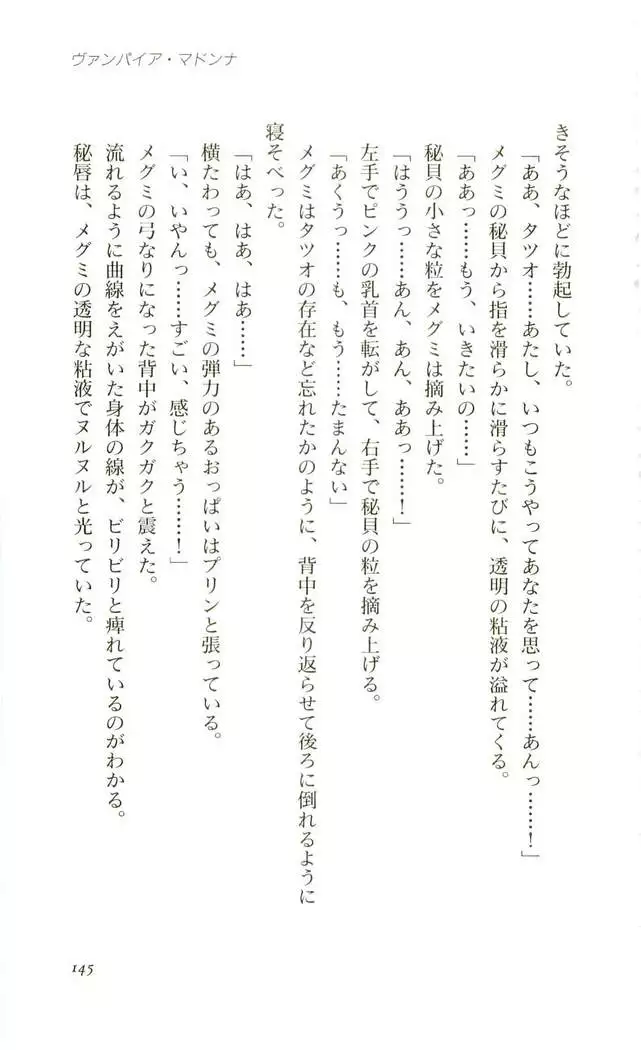 ヴァンパイア・マドンナ
きそうなほどに勃起していた。
「ああ、タツオ……あたし、いつもこうやってあなたを思って……あんっ……！」
メグミの秘貝から指を滑らかに滑らすたびに、透明の粘液が溢れてくる。
「ああっ……もう、いきたいの……」
秘貝の小さな粒をメグミは摘み上げた。
「はううっ……あん、あん、ああっ……！」
左手でピンクの乳首を転がして、右手で秘貝の粒を摘み上げる。
「あくうっ……も、もう……たまんない」
メグミはタツオの存在など忘れたかのように、背中を反り返らせて後ろに倒れるように
寝そべった。
「はあ、はあ、はあ……」
横たわっても、メグミの弾力のあるおっぱいはプリンと張っている。
「い、いやんっ……すごい、感じちゃう……！」
メグミの弓なりになった背中がガクガクと震えた。
流れるように曲線をえがいた身体の線が、ビリビリと痺れているのがわかる。
秘唇は、メグミの透明な粘液でヌルヌルと光っていた。
145